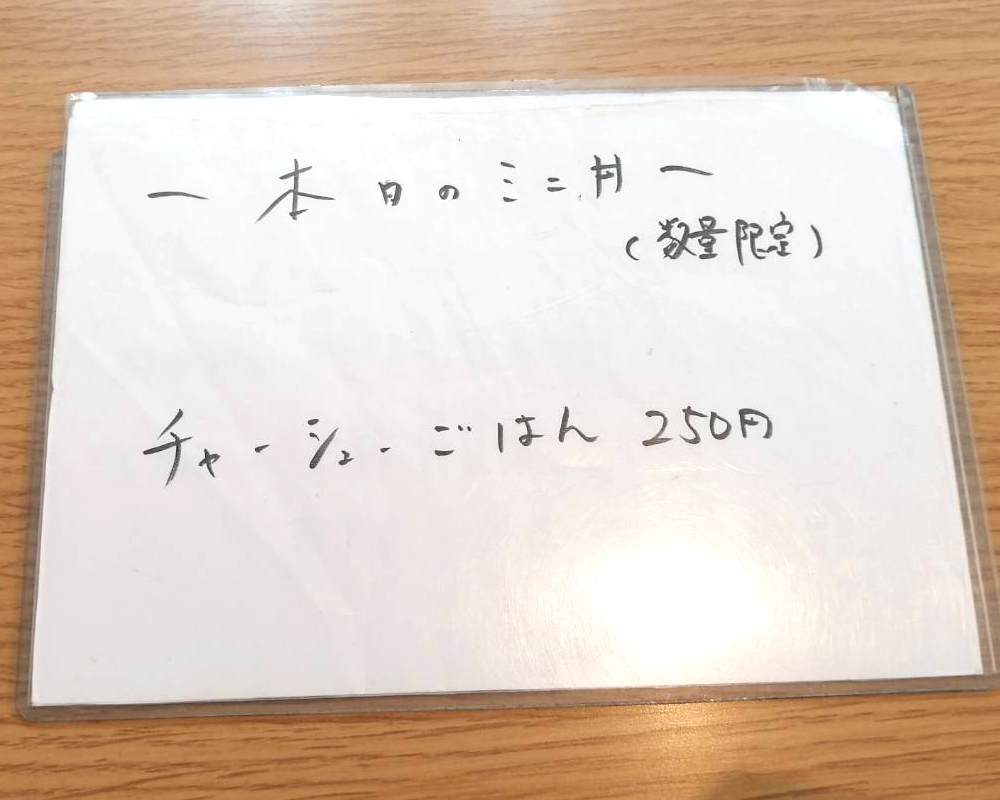 〜 本日のミニ丼 〜
(数量限定)
チャーシューごはん 250円